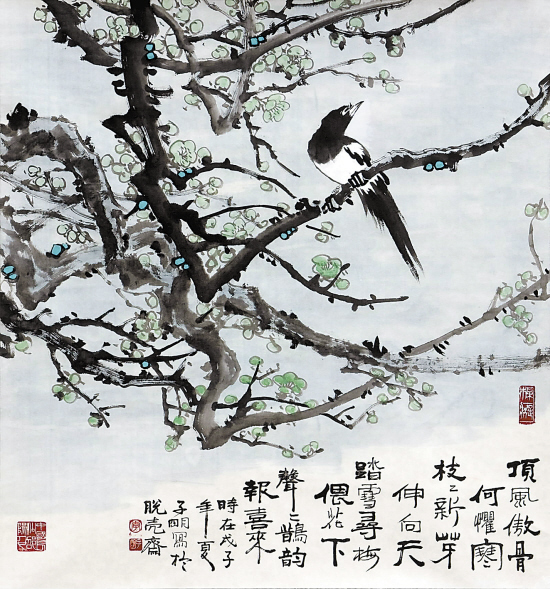 頂風傲骨
何懼寒
枝〻新芽
伸向天
踏雪尋梅
偎花下
聲〻鵲韵
報喜來
時在戊子
年夏
子明寫於
脱壳齋